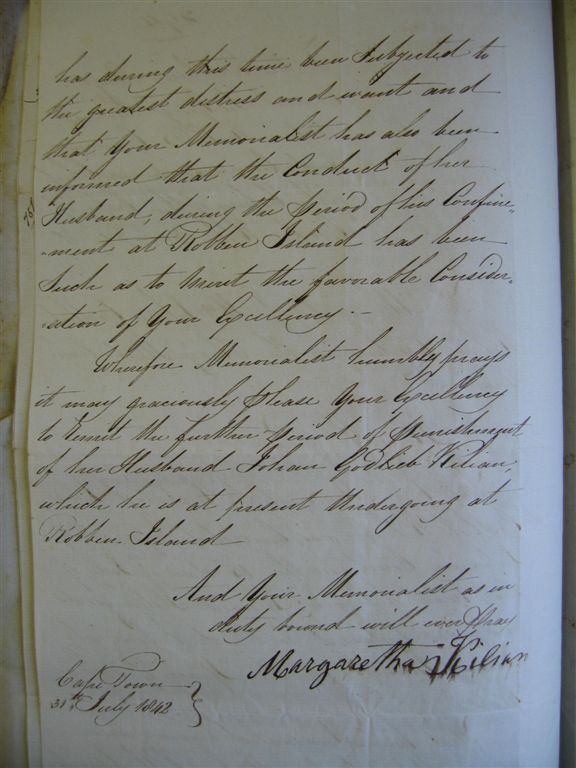 has during this time been Subjected to
the greatest distress and want and
that Your Memorialist has also been
informed that the Conduct of her
Husband, during the Period of his Confine„
„ment at Robben Island has been
Such as to merit the favorable Consider„
„ation of Your Excellency. –
Wherefore Memorialist humbly prays
it may graciously please Your Excellency
to Remit the further Period of Punishment
of her Husband Johan Godlieb Kilian,
which he is at present Undergoing at
Robben Island
And Your Memorialist as in
duty bound will ever Pray
Margaretha Kilian
Cape Town
31st July 1842